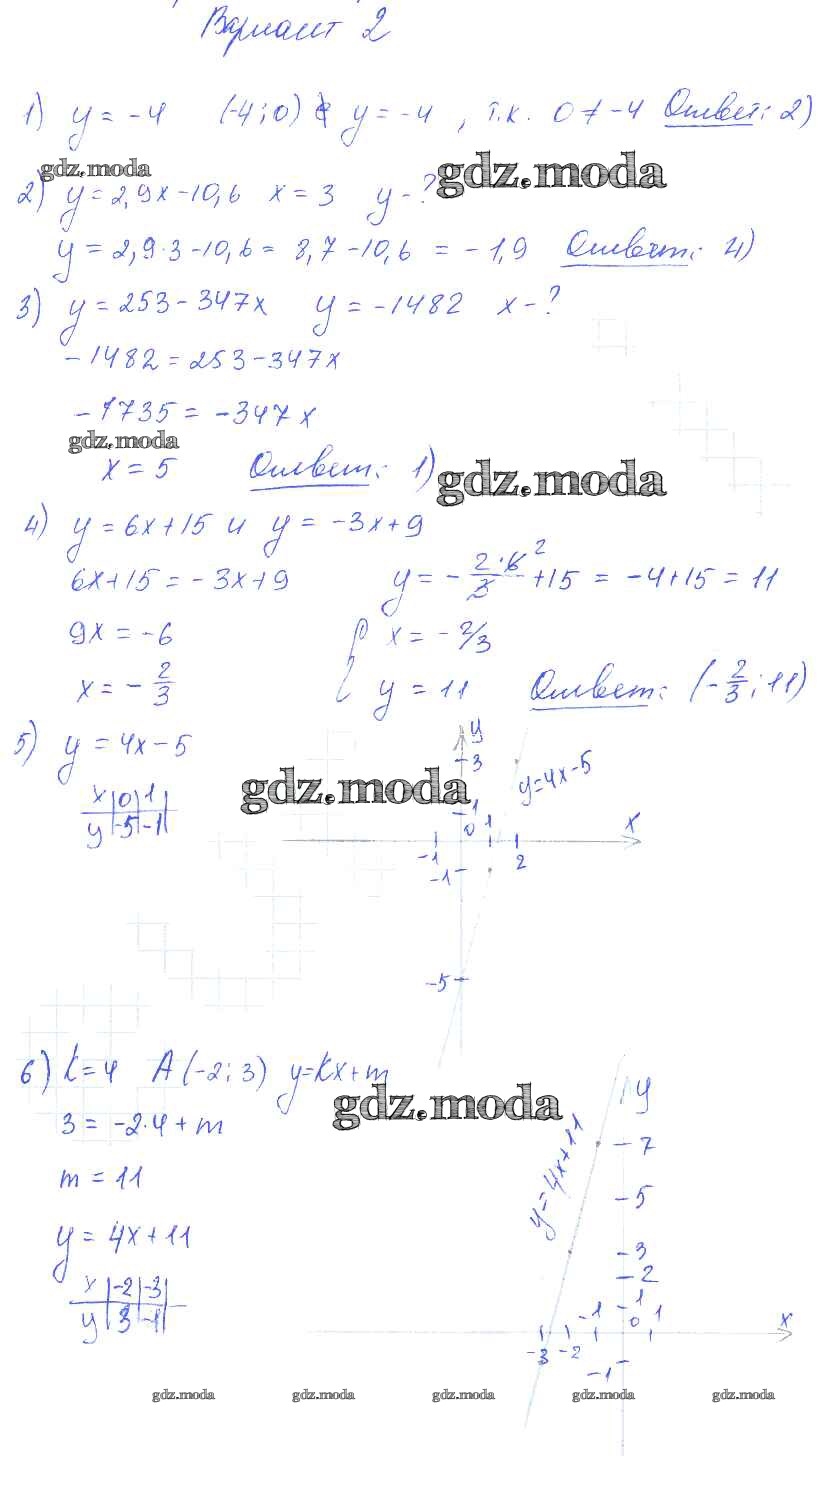 Вариант 2
1) y = -4 (-4; 0) ∉ y = -4, т.к. 0 ≠ -4 Ответ: 2)
gdz.moda gdz.moda
2) y = 2,9x - 10,6 x = 3 y - ?
y = 2,9·3 - 10,6 = 8,7 - 10,6 = -1,9 Ответ: 4)
3) y = 253 - 347x y = -1482 x - ?
-1482 = 253 - 347x
-1735 = -347x
gdz.moda gdz.moda
x = 5 Ответ: 1)
4) y = 6x + 15 и y = -3x + 9
6x + 15 = -3x + 9 y = - 2·6 2 / 3 + 15 = -4 + 15 = 11
9x = -6 { x = -2/3
x = - 2/3 y = 11 Ответ: (- 2/3; 11)
5) y = 4x - 5
x | 0 | 1 |
y | -5 | -1 |
gdz.moda
y
3
y=4x-5
1
0 1 x
-1 2
-1
-5
6) k = 4 A (-2; 3) y = kx + m
gdz.moda
3 = -2·4 + m
m = 11
y = 4x + 11
x | -2 | -3 |
y | 3 | -1 |
y
y=4x+11
7
5
3
2
1
-1 0 1 x
-3 -2
-1
gdz.moda gdz.moda gdz.moda gdz.moda gdz.moda